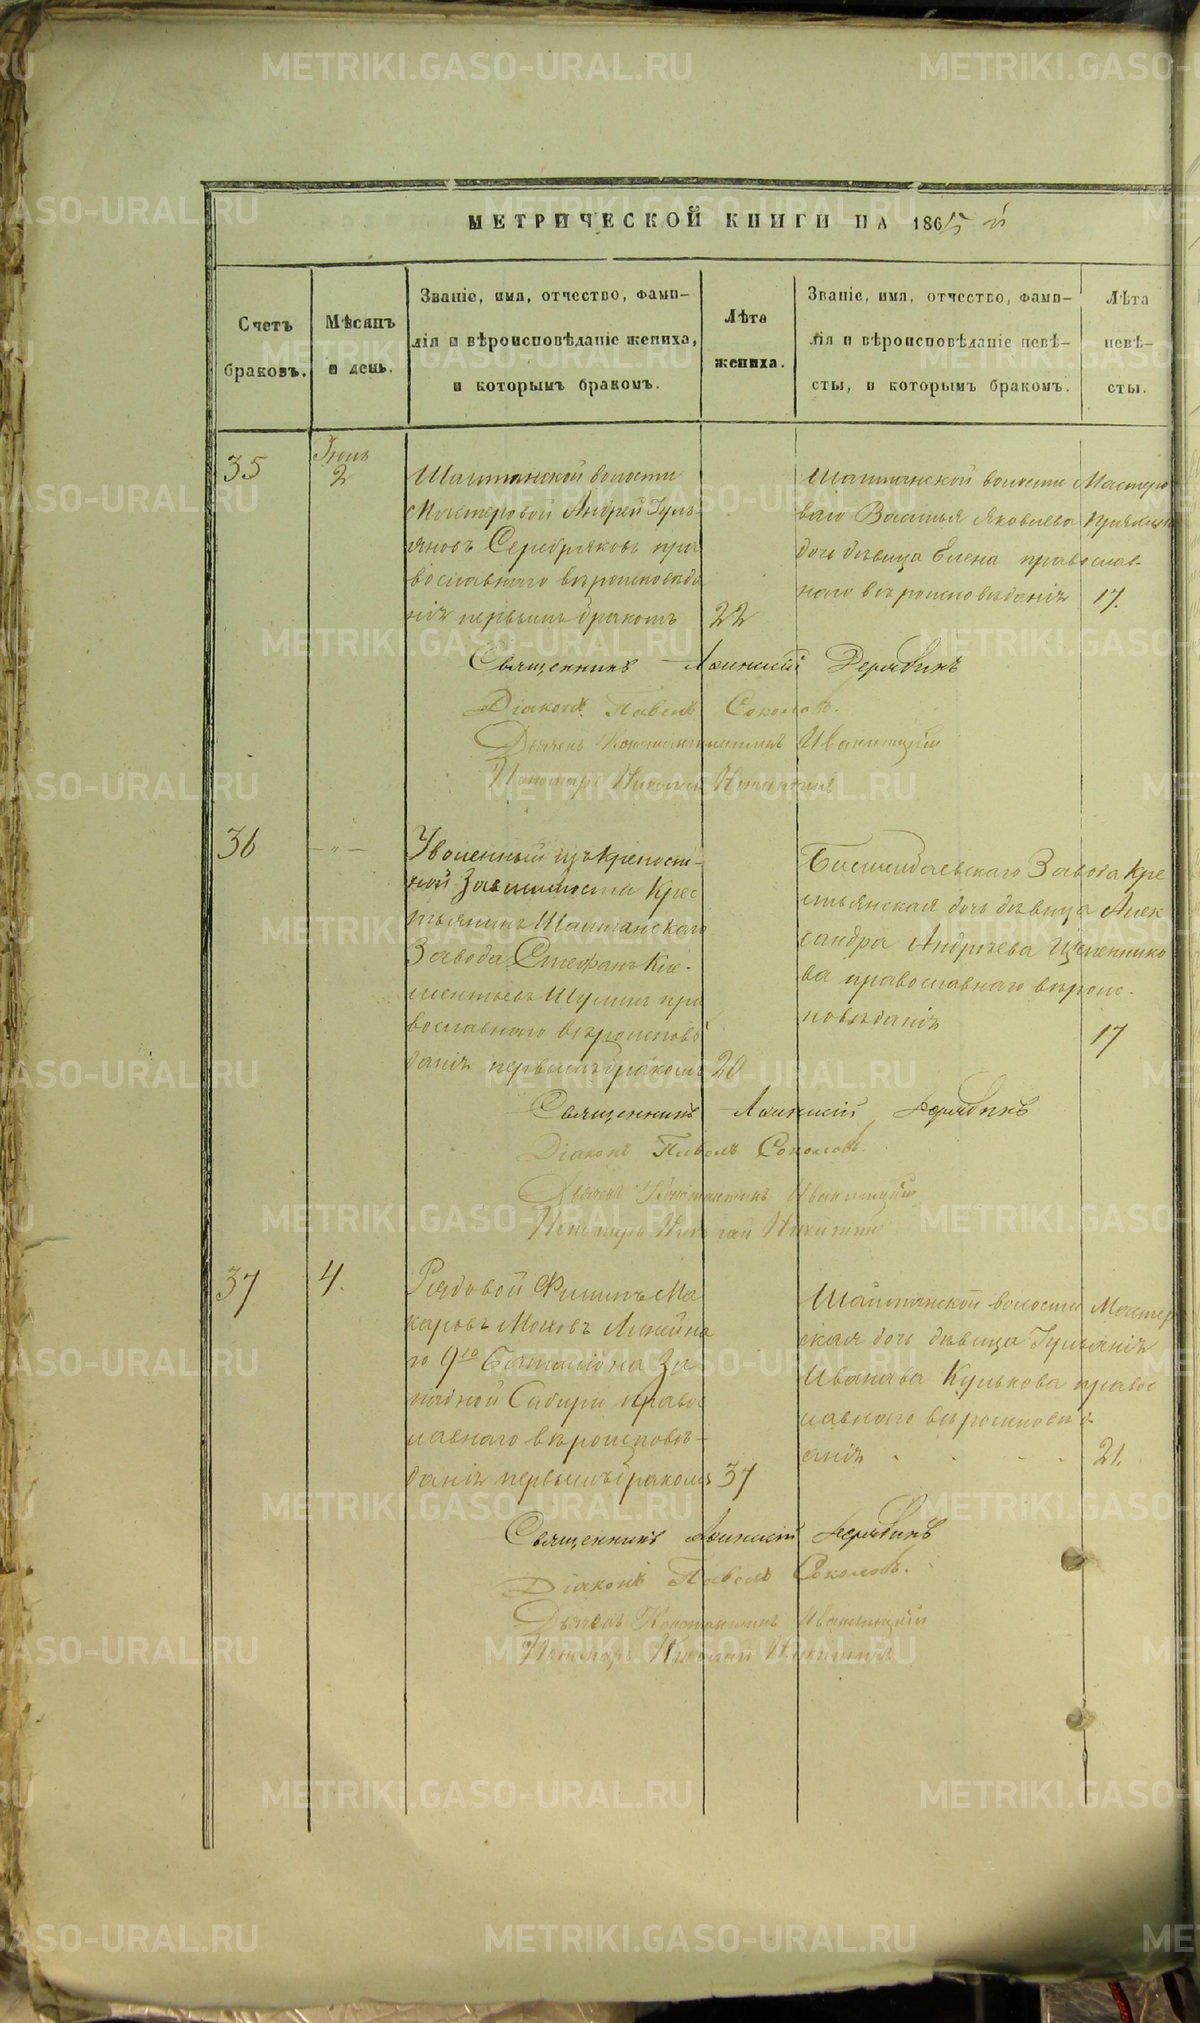 МЕТРИЧЕСКОЙ КНИГИ НА 1865 й
Счетъ браковъ.
Мѣсяцъ и день.
Званіе, имя, отчество, фами-
лія и вѣроисповѣданіе жениха,
и которымъ бракомъ.
Лѣта жениха.
Званіе, имя, отчество, фами-
лія и вѣроисповѣданіе невѣ-
сты, и которымъ бракомъ.
Лѣта невѣ-
сты.
35
2
Шайтанской волости
Мастеровой Андрей Гурь-
яновъ Серебряковъ пра
вославнаго вѣроисповѣда
нія первымъ бракомъ
22
Шайтанской волости Мастеро
ваго Василья Яковлева
дочь дѣвица Елена православ-
наго вѣроисповѣданія
17.
Священникъ Аѳинасій Дерябинъ
Діаконъ Павелъ Соколовъ.
Дьячекъ Константинъ Иваницкій
Пономарь Николай Никитинъ
36
— „ —
Уволенный изъ крепост-
ной Зависимости Крес
тьянинъ Шайтанскаго
Завода Стефанъ Кле-
ментьевъ Шулинъ пра
вославнаго вѣроисповѣ
данія первымъ бракомъ
20
Завода Кре
стьянская дочь дѣвица Алек
сандра Андреева Щепеннико
ва православнаго вѣроис-
повѣданія
17
Священникъ Аѳинасій Дерябинъ
Діаконъ Павелъ Соколовъ.
Дьячекъ Константинъ Иваницкій
Пономарь Николай Никитинъ
37
4.
Рядовой Филипъ Ма
каровъ Моховъ Линейна
го 9го Баталіона За
падной Сибири правос
лавнаго вѣроисповѣ-
данія первымъ бракомъ
37
Шайтанской волости Мастер
ская дочь дѣвица Іуліанія
Иванава Кулькова правос
лавнаго вѣроисповѣд
анія
21.
Священникъ Аѳинасій Дерябинъ
Діаконъ Павелъ Соколовъ.
Дьячекъ Константинъ Иваницкій
Пономарь Николай Никитинъ
METRIKI.GASO-URAL.RU